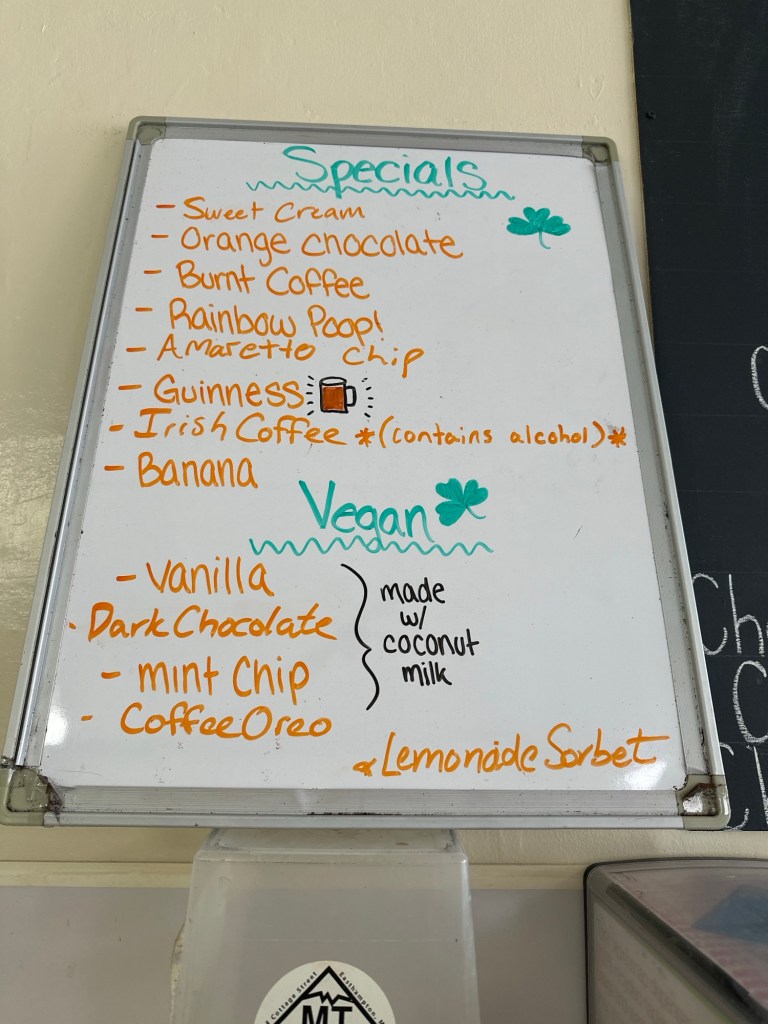 Specials
- Sweet Cream
- Orange chocolate
- Burnt Coffee
- Rainbow Poop!
- Amaretto chip
- Guinness
- Irish Coffee *(contains alcohol)*
- Banana
Vegan
- Vanilla
- Dark Chocolate
- mint chip
- Coffee Oreo
made
w/
coconut
milk
* Lemonade Sorbet
Cottage Street
Easthampton,
MT